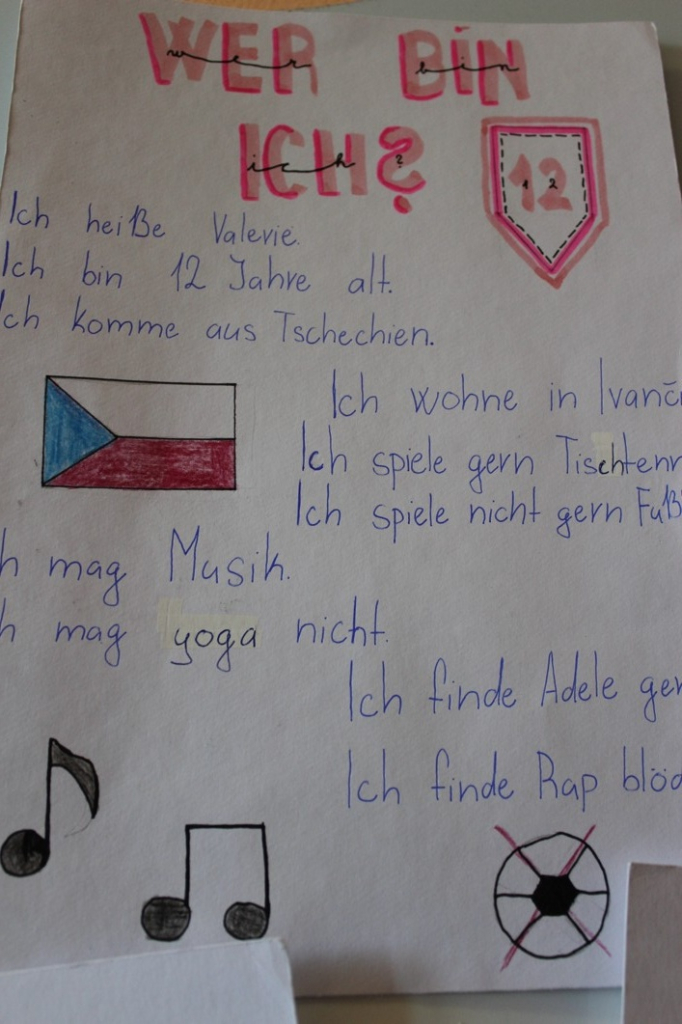 WER BIN
wer bin
ICH?
ich ?
12
1 2
Ich heiße Valerie.
Ich bin 12 Jahre alt.
Ich komme aus Tschechien.
Ich wohne in Ivanč
Ich spiele gern Tischtenn
Ich spiele nicht gern Fuß
h mag Musik.
h mag yoga nicht.
Ich finde Adele ger
Ich finde Rap blöd